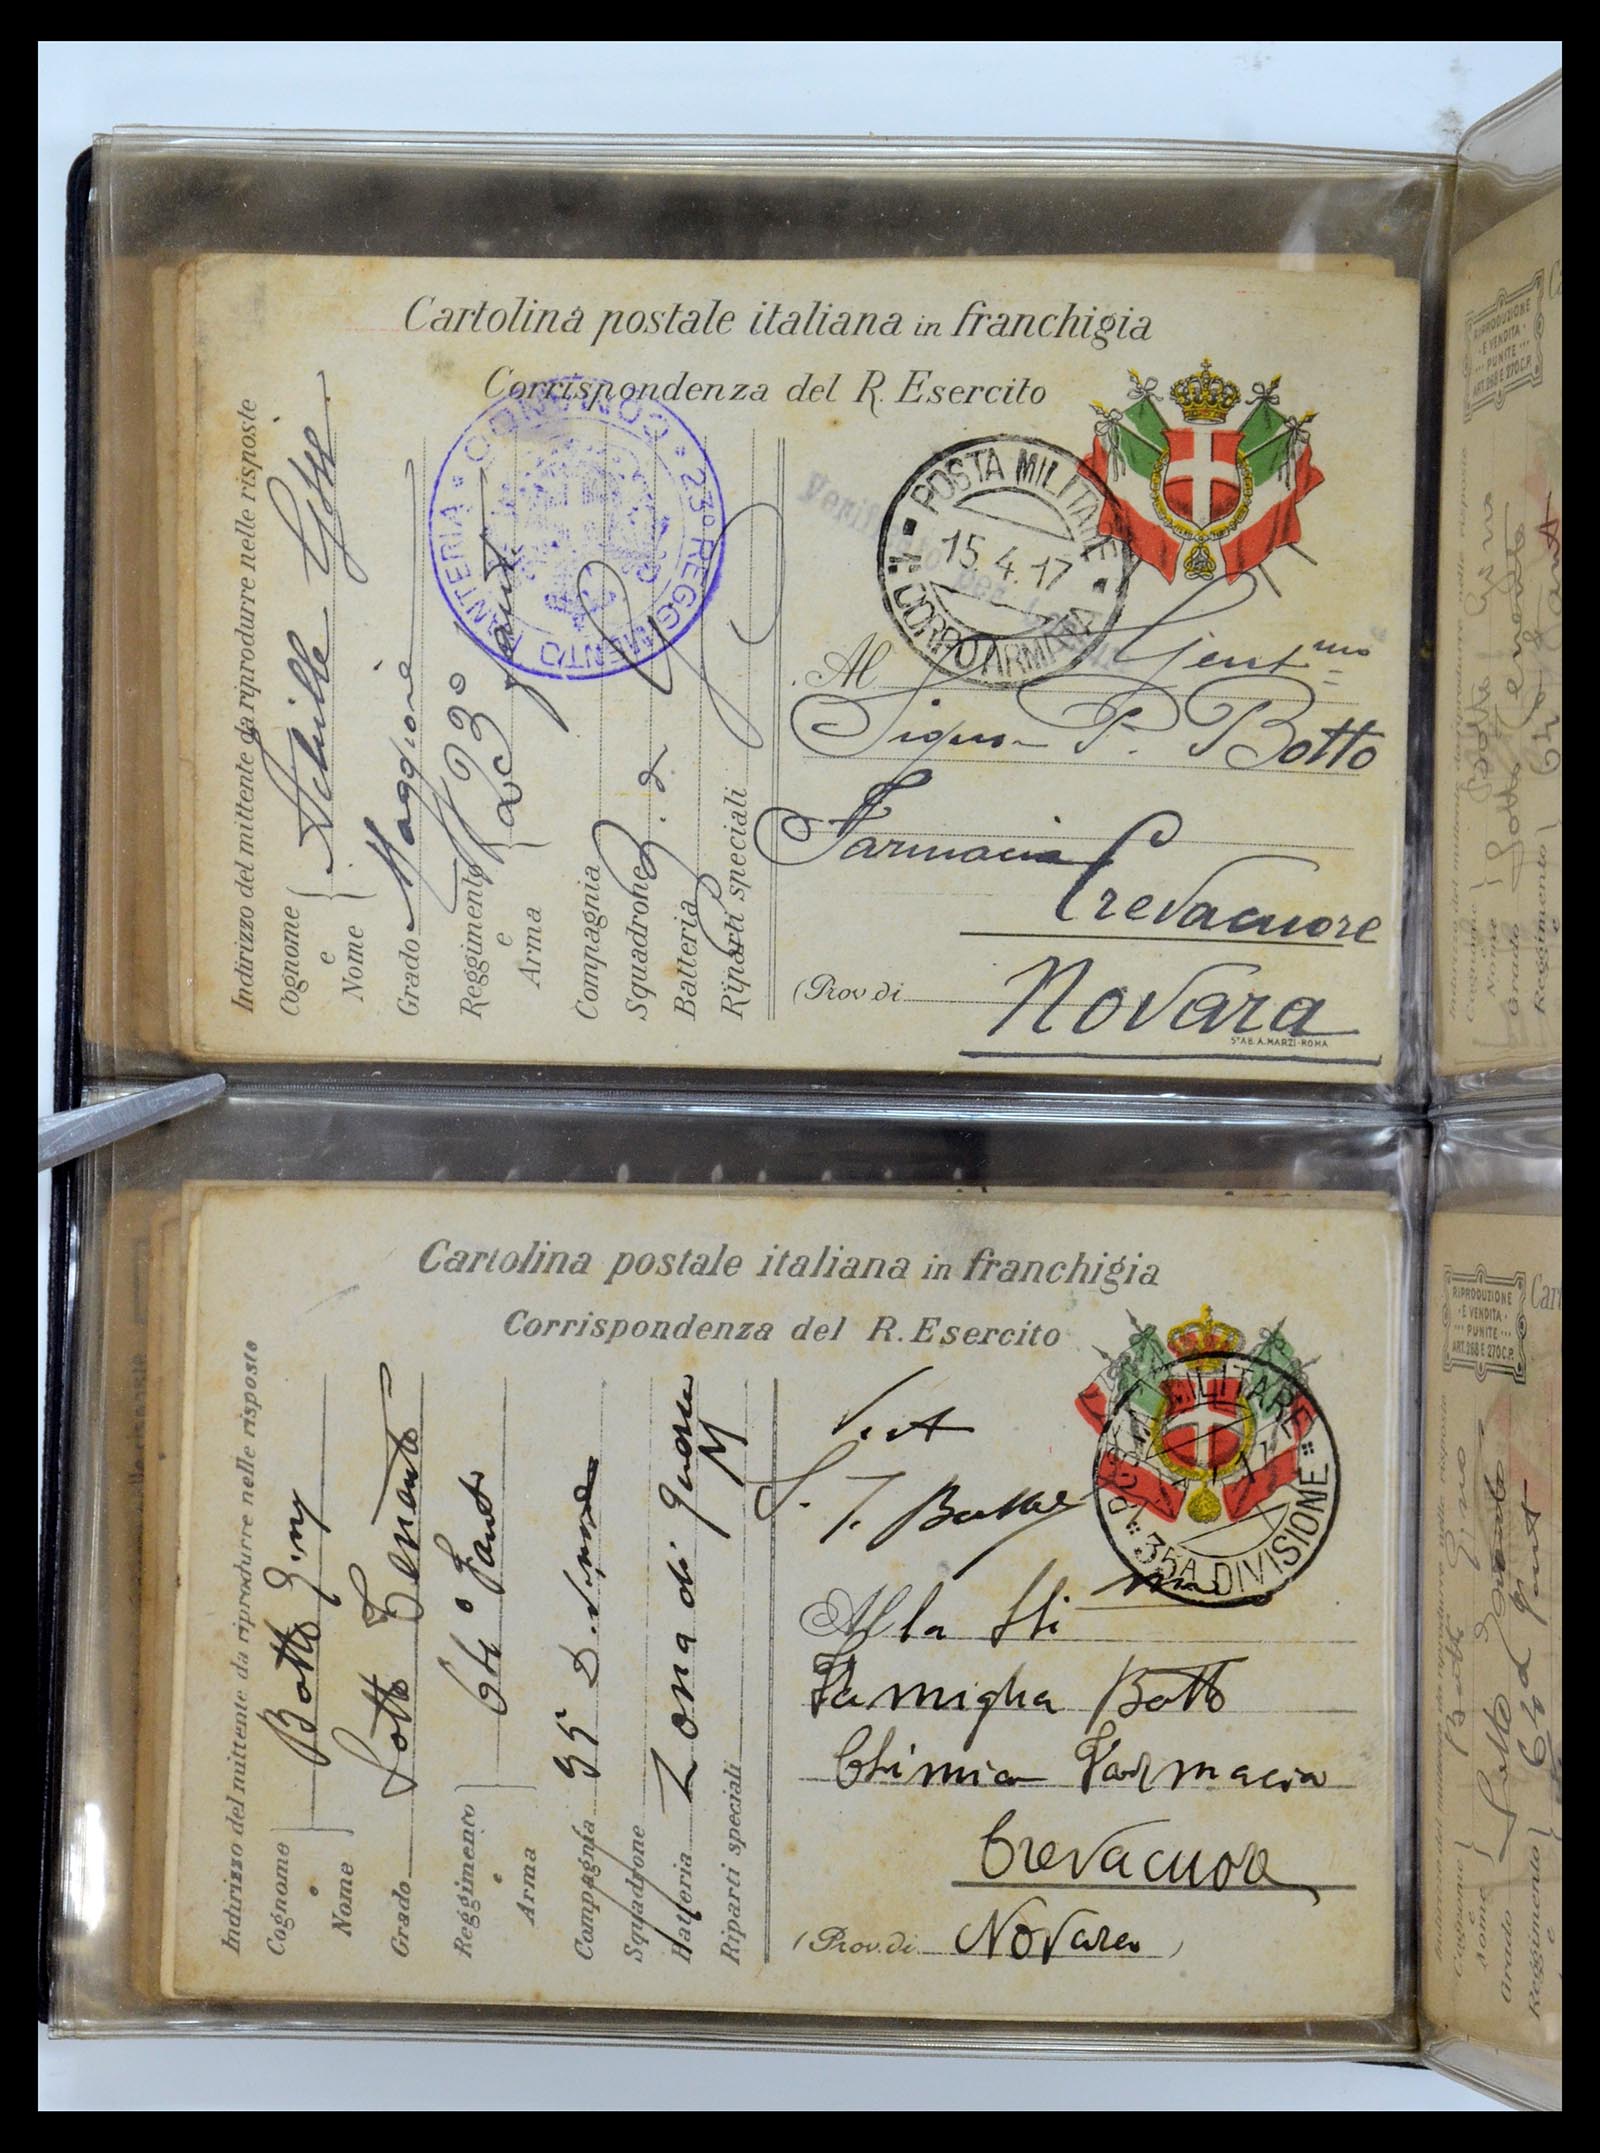 Cartolina postale italiana in franchigia
Corrispondenza del R. Esercito
Indirizzo del mittente da riprodurre nelle risposte
Cognome
e
Nome
Achille
Grado Maggiore
Reggimento
e
Arma
23° fant
Compagnia
Squadrone
Batteria
Riparti speciali
COMANDO * 23° REGGIMENTO FANTERIA *
Verificato per
POSTA MILITARE
15.4.17
CORPO ARMATA
Al Gent.mo
Signor P. Botto
Farmacia
Crevacuore
(Prov. di Novara
STAB. A. MARZI-ROMA
Cartolina postale italiana in franchigia
Corrispondenza del R. Esercito
Indirizzo del mittente da riprodurre nelle risposte
Cognome
e
Nome
Botto Gino
Grado Sotto Tenente
Reggimento
e
Arma
Fant
Compagnia 35 D.
Squadrone
Batteria Zona di guerra
Riparti speciali
POSTA MILITARE
35A DIVISIONE
Alla
Famiglia Botto
Chimica Farmacia
Crevacuore
(Prov. di Novara)
RIPRODUZIONE
E VENDITA
PUNITE
ART. 268 E 270 C.P.
Cognome
e
Nome
Grado
Reggimento
e
RIPRODUZIONE
E VENDITA
PUNITE
ART. 268 E 270 C.P.
Cart
Cognome
e
Nome
Grado
Reggimento
e